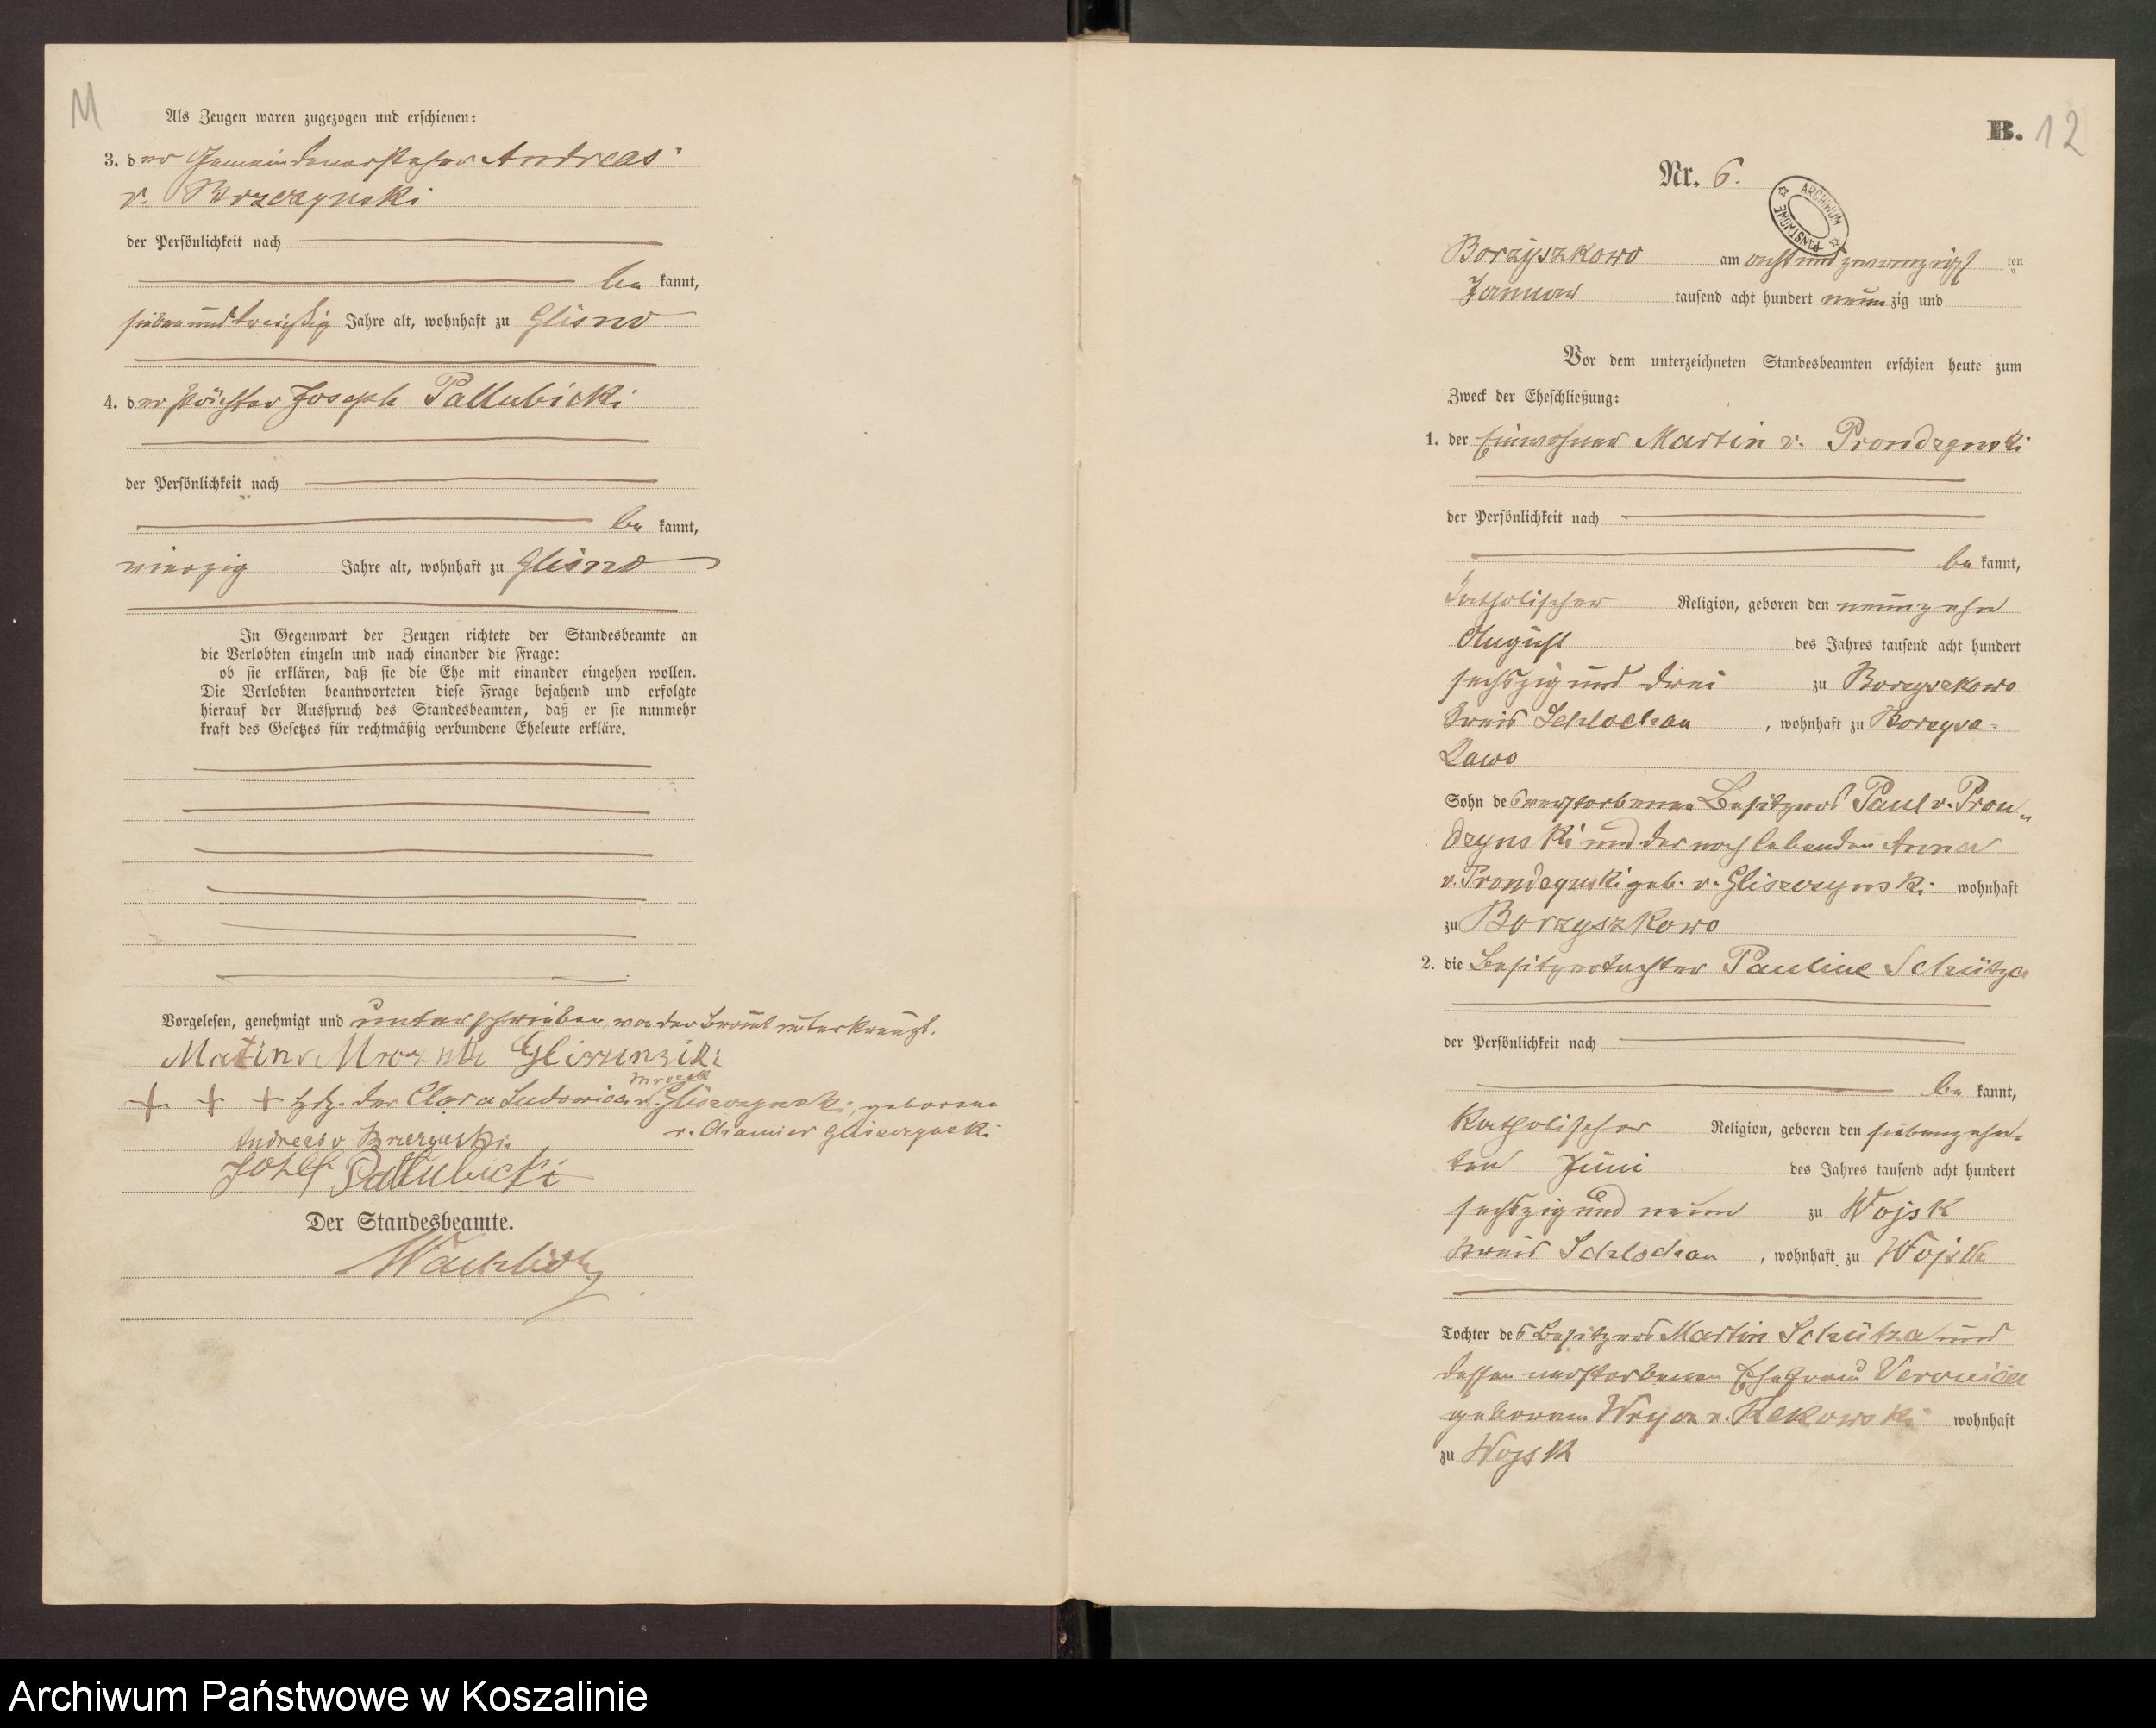 M
Als Zeugen waren zugezogen und erschienen:
3. der Gemeindevorsteher Andreas
v. Brzezynski
der Persönlichkeit nach
be kannt,
siebenunddreißig Jahre alt, wohnhaft zu Glisno
4. der Pächter Joseph Pallubicki
der Persönlichkeit nach
be kannt,
vierzig Jahre alt, wohnhaft zu Glisno
In Gegenwart der Zeugen richtete der Standesbeamte an
die Verlobten einzeln und nach einander die Frage:
ob sie erklären, daß sie die Ehe mit einander eingehen wollen.
Die Verlobten beantworteten diese Frage bejahend und erfolgte
hierauf der Ausspruch des Standesbeamten, daß er sie nunmehr
kraft des Gesetzes für rechtmäßig verbundene Eheleute erkläre.
Vorgelesen, genehmigt und unterschrieben, von der Braut unterkreuzt.
Matin v Mrozek Gliszinziki
Mrozek
+ + + Hdz. der Clara Ludowica v. Gliszczynski, geborene
v. Chamier Gliszczynski
Andreas v Brzezynski
Josef Pallubicki
Der Standesbeamte.
B. 12
Nr. 6.
ARCHIWUM PAŃSTWOWE
Borzyszkowo am achtundzwanzigsten
Januar tausend acht hundert neunzig und
Vor dem unterzeichneten Standesbeamten erschien heute zum
Zweck der Eheschließung:
1. der Einwohner Martin v. Prondzynski
der Persönlichkeit nach
be kannt,
katholischer Religion, geboren den neunzehn
August des Jahres tausend acht hundert
sechszig und drei zu Borzyszkowo
Kreis Schlochau, wohnhaft zu Borzysz=
kowo
Sohn des verstorbenen Besitzers Paul v. Pron„
dzynski und der noch lebenden Anna
v. Prondzynski geb. v. Gliszczynski wohnhaft
zu Borzyszkowo
2. die Besitzertochter Pauline Schütza
der Persönlichkeit nach
be kannt,
Katholischer Religion, geboren den siebenzehn=
ten Juni des Jahres tausend acht hundert
sechszig und neun zu Wojsk
Kreis Schlochau, wohnhaft zu Wojsk
Tochter des Besitzers Martin Schütza und
dessen verstorbenen Ehefrau Veronica
geborene Wrycz v. Rekowski wohnhaft
zu Wojsk
Archiwum Państwowe w Koszalinie